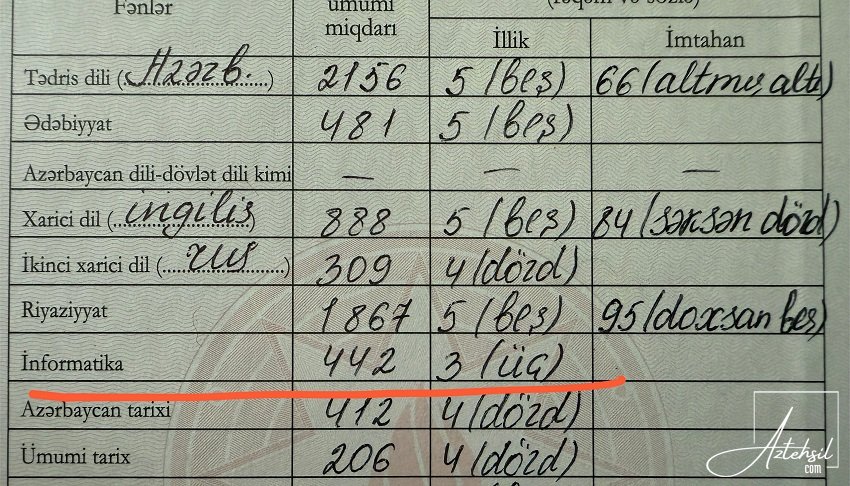 Fənlər ümumi miqdarı
İllik İmtahan
Tədris dili (Azərb.) 2156 5 (beş) 66 (altmış altı)
Ədəbiyyat 481 5 (beş)
Azərbaycan dili-dövlət dili kimi — — —
Xarici dil (ingilis) 888 5 (beş) 84 (səksən dörd)
İkinci xarici dil (rus) 309 4 (dörd)
Riyaziyyat 1867 5 (beş) 95 (doxsan beş)
İnformatika 442 3 (üç)
Azərbaycan tarixi 412 4 (dörd)
Ümumi tarix 206 4 (dörd)
Aztehsil
com